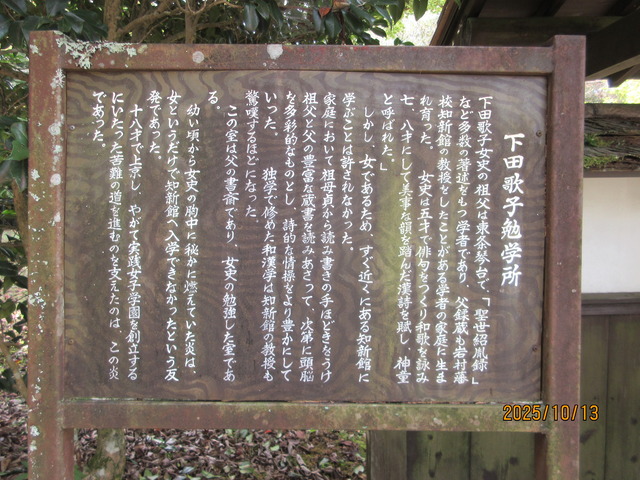 下田歌子勉学所
下田歌子女史の祖父は東条琴台で、「聖世紹胤録」
など多数の著述をもつ学者であり、父鍒蔵も岩村藩
校知新館の教授をしたことがある学者の家庭に生ま
れ育った。　女史は五才で俳句をつくり和歌を詠み
七、八才にして美事な韻を踏んだ漢詩を賦し、神童
と呼ばれた。」
しかし、女であるため、すぐ近くにある知新館に
学ぶことは許されなかった。
家庭において祖母貞から読み書きの手ほどきをうけ
祖父と父の豊富な蔵書を読みあさって、次第に頭脳
を多彩的なものとし、詩的の情操をより豊かにして
いった。　独学で修めた和漢学は知新館の教授も
驚嘆するほどになった。
この室は父の書斎であり、女史の勉強した室であ
る。
幼い頃から女史の胸中に秘かに燃えていた炎は、
女というだけで知新館へ入学できなかったという反
発であった。
十八才で上京し、やがて実践女子学園を創立する
にいたった苦難の道を進むのを支えたのは、この炎
であった。
2025/10/13